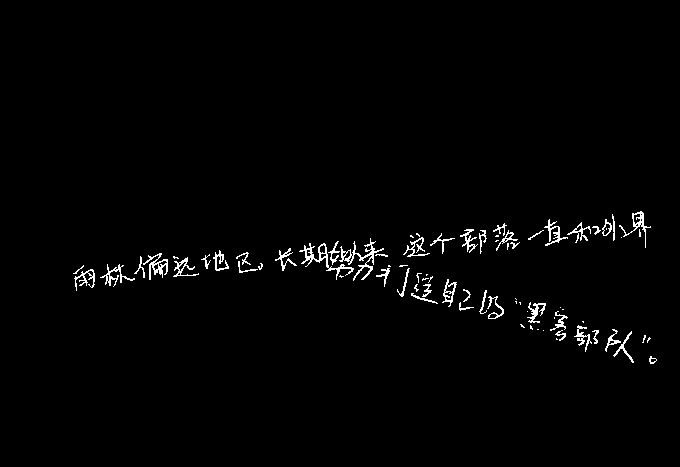 雨林偏远地区,长期以来 这个部落一直和外界
努力打造自己的“黑客部队”。